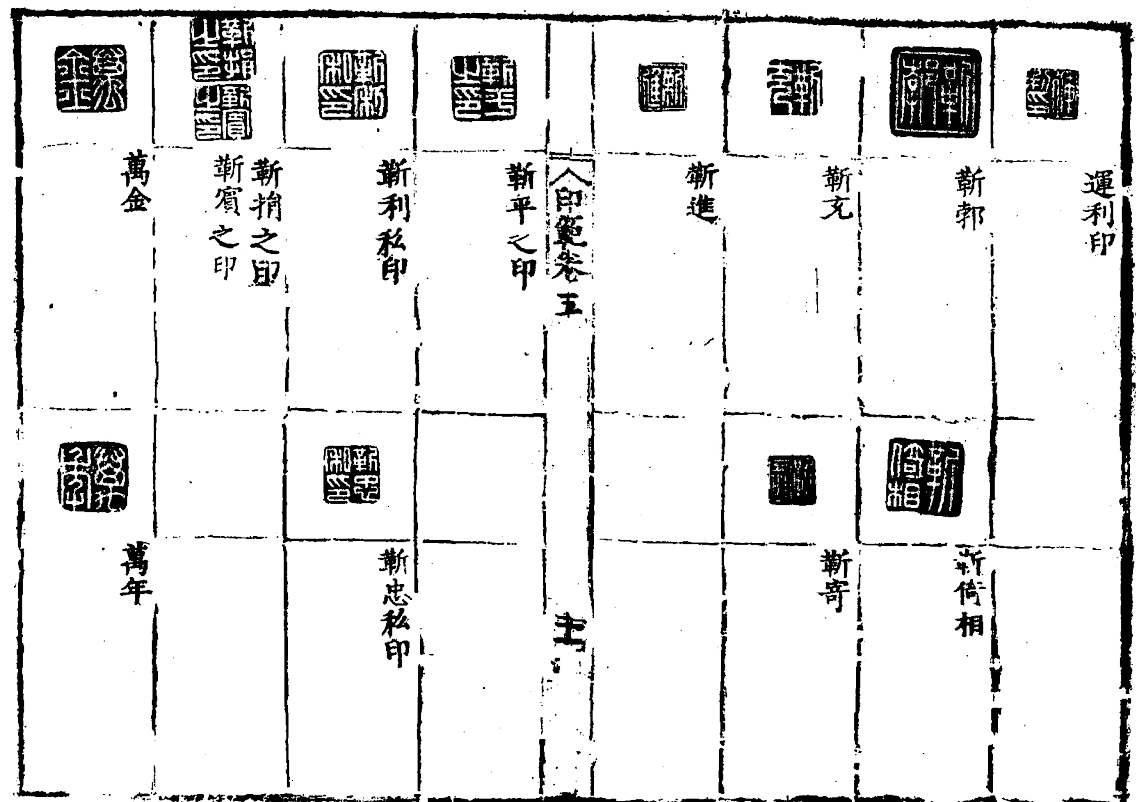 運利印
靳郭
靳倚相
靳充
靳寄
靳進
印範卷五
靳平之印
靳利私印
靳忠私印
靳捐之印
靳賓之印
萬金
萬年